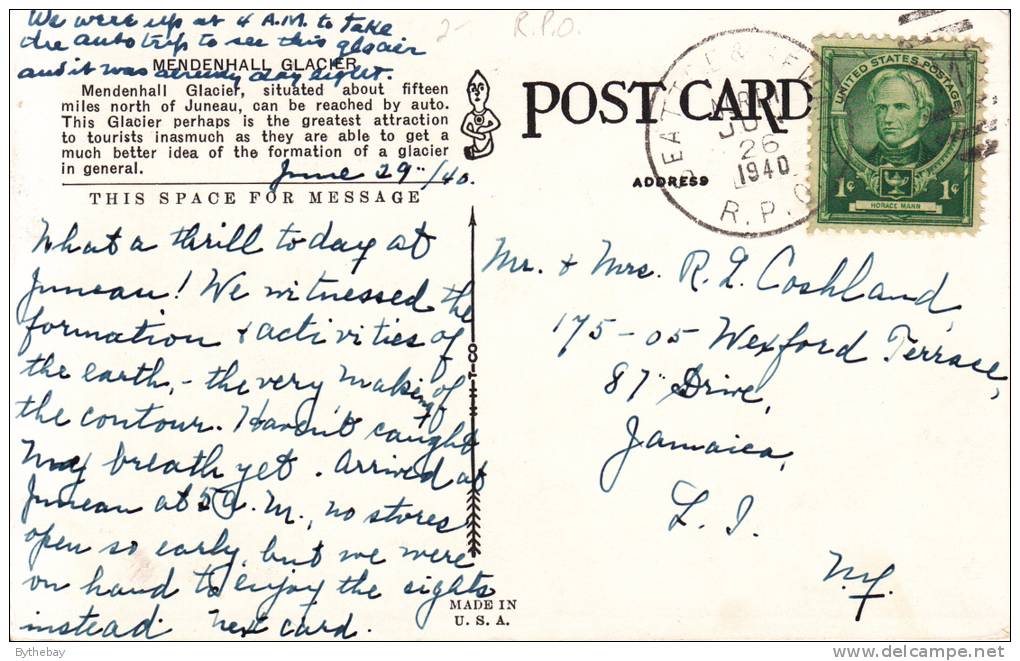 We were up at 4 A.M. to take
the auto trip to see this glacier
and it was already day light.
MENDENHALL GLACIER
Mendenhall Glacier, situated about fifteen
miles north of Juneau, can be reached by auto.
This Glacier perhaps is the greatest attraction
to tourists inasmuch as they are able to get a
much better idea of the formation of a glacier
in general.
June 29"/40.
THIS SPACE FOR MESSAGE
What a thrill to day at
Juneau! We witnessed the
formation + activities of
the earth, - the very making of
the contour. Haven't caught
my breath yet. Arrived at
Juneau at 5 A.M., no stores
open so early, but we were
on hand to enjoy the sights
instead. Next card.
2-
R.P.O.
POST CARD
ADDRESS
SEATTLE &
JUN
26
1940
R.P.O.
UNITED STATES POSTAGE
1¢ 1¢
HORACE MANN
Mr. + Mrs. R. L. Coshland,
175-05 Wexford Terrace,
87" Drive,
Jamaica,
L. I.
N.Y.
MADE IN
U. S. A.
Bythebay
http://www.delcampe.net